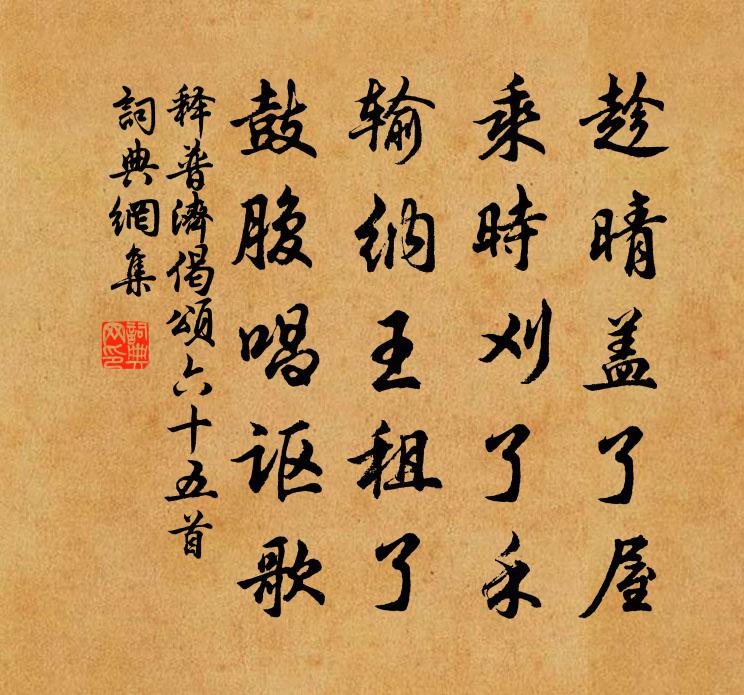 趁晴盖了屋
乘時刈了禾
输纳王租了
鼓腹唱讴歌
释普濟偈頌六十五首
詞典網集
詞典网印